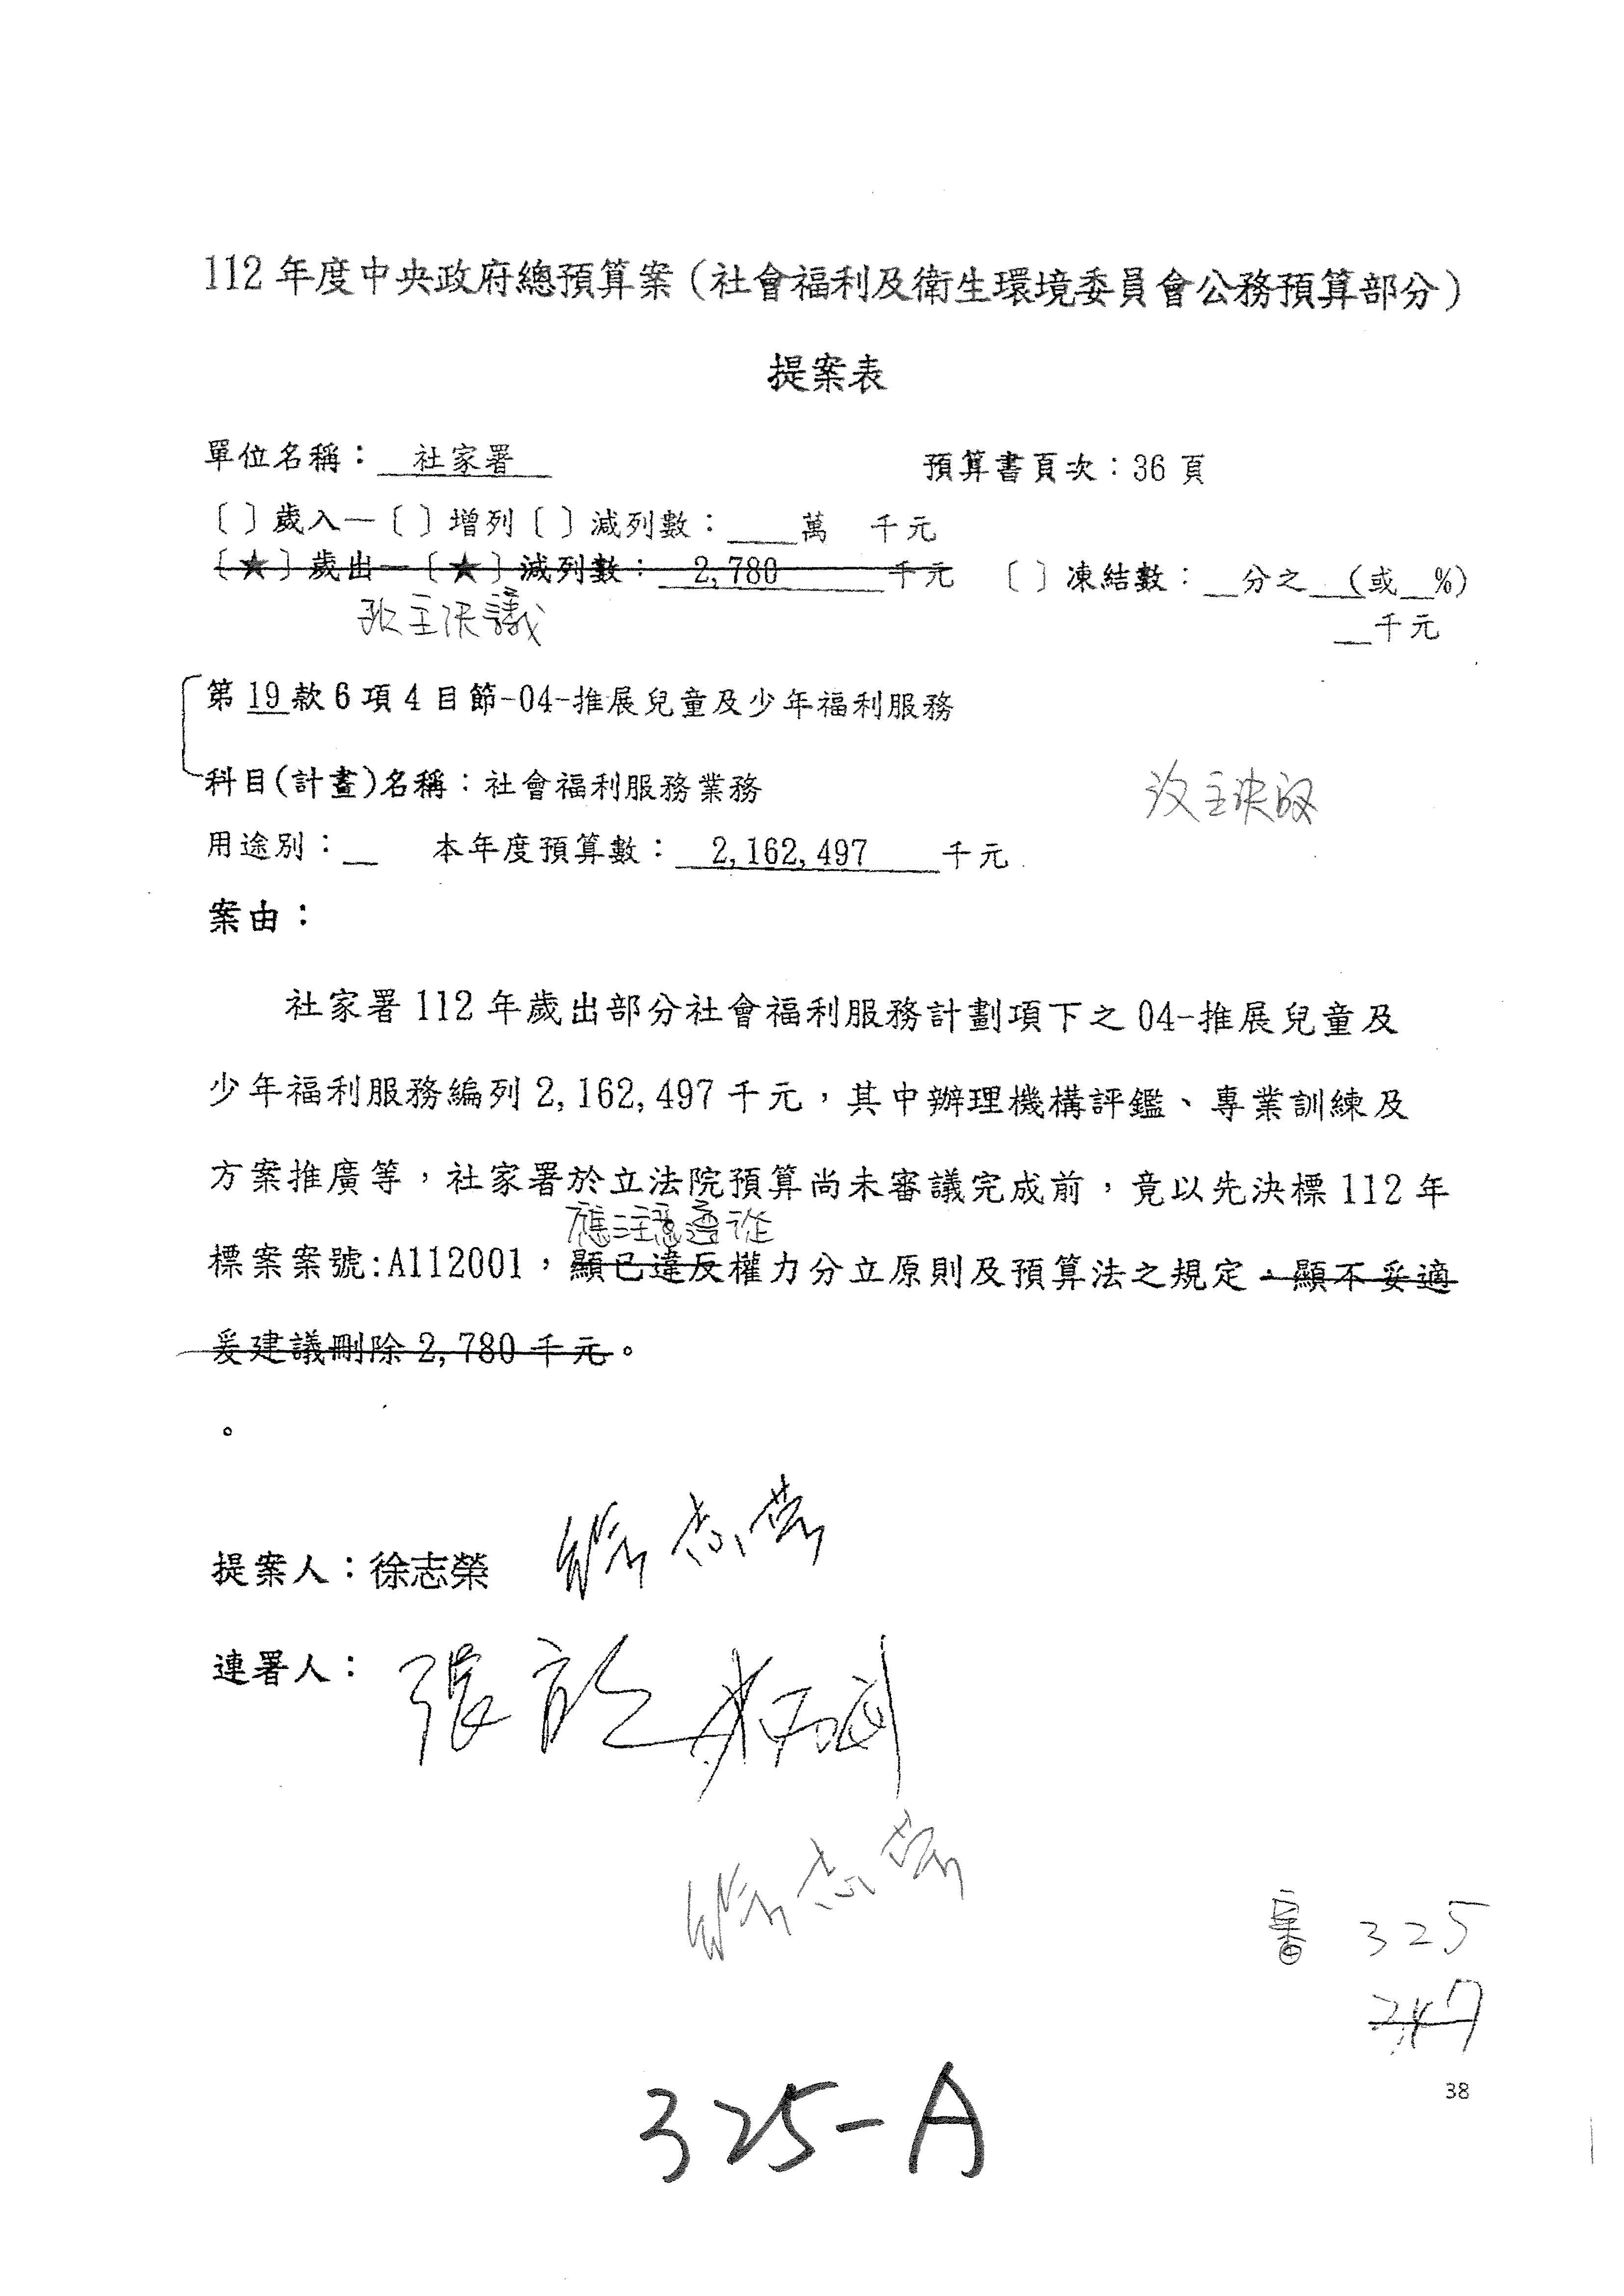 112年度中央政府總預算案(社會福利及衛生環境委員會公務預算部分)
提案表
單位名稱：社家署 預算書頁次：36頁
〔〕歲入—〔〕增列〔〕減列數：___萬 千元
〔★〕歲出—〔★〕減列數：2,780千元 〔〕凍結數：__分之__(或__%)
__千元
改主決議
第19款6項4目節-04-推展兒童及少年福利服務
科目(計畫)名稱：社會福利服務業務
改主決議
用途別：__ 本年度預算數：2,162,497千元
案由：
社家署112年歲出部分社會福利服務計劃項下之04-推展兒童及
少年福利服務編列2,162,497千元，其中辦理機構評鑑、專業訓練及
方案推廣等，社家署於立法院預算尚未審議完成前，竟以先決標112年
應注意遵從
標案案號:A112001，顯已違反權力分立原則及預算法之規定，顯不妥適
爰建議刪除2,780千元。
。
提案人：徐志榮 徐志榮
連署人：
徐志榮
審 325
247
38
325-A